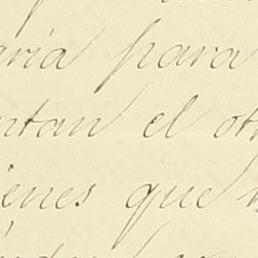 aria para
ntan el ot
ienes que